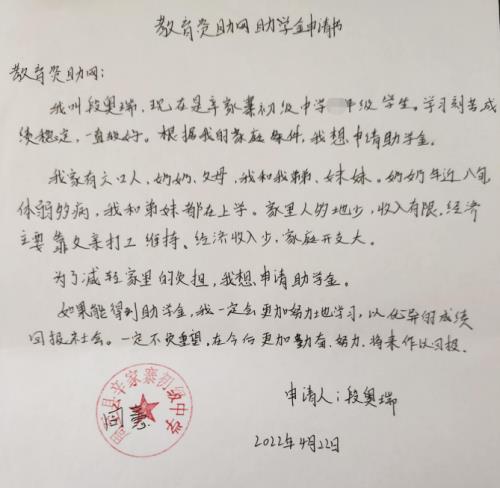 教育资助网助学金申请书
教育资助网：
我叫段奥瑞，现在是辛家寨初级中学年级学生。学习刻苦成
绩稳定，一直较好。根据我的家庭条件，我想申请助学金。
我家有六口人，奶奶、父母，我和我弟弟、妹妹。奶奶年近八旬
体弱多病，我和弟妹都在上学。家里人多地少，收入有限，经济
主要靠父亲打工维持。经济收入少，家庭开支大。
为了减轻家里的负担，我想申请助学金。
如果能得到助学金，我一定会更加努力地学习，以优异的成绩
回报社会。一定不负重望，在今后更加勤奋、努力，将来作以回报。
县辛家寨初级中学
申请人：段奥瑞
2022年4月22日